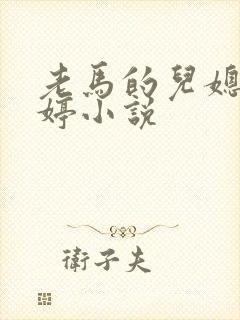 老馬的兒媳
婷小說
衛子夫